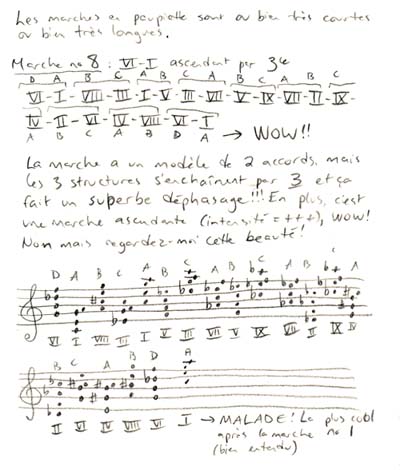 Les marches en paupiette sont ou bien très courtes
ou bien très longues.
Marche no 8 : VI-I ascendant par 3ce
D A B C A B C A B C
VI-I-VIII-III-I-V-III-VII-V-IX-VII-II-IX-
IV-II-VI-IV-VIII-VI-I
A B C A B D A → WOW!!
La marche a un modèle de 2 accords, mais
les 3 structures s'enchaînent par 3 et ça
fait un superbe déphasage!!! En plus, c'est
une marche ascendante (intensité = +++), WOW!
Non mais regardez-moi cette beauté!
D A B C A B C A B C A B C A
VI I VIII III I V III VII V IX VII II IX IV
B C A B D A
II VI IV VIII VI I → MALADE! La plus cool
après la marche no 1
(bien entendu)